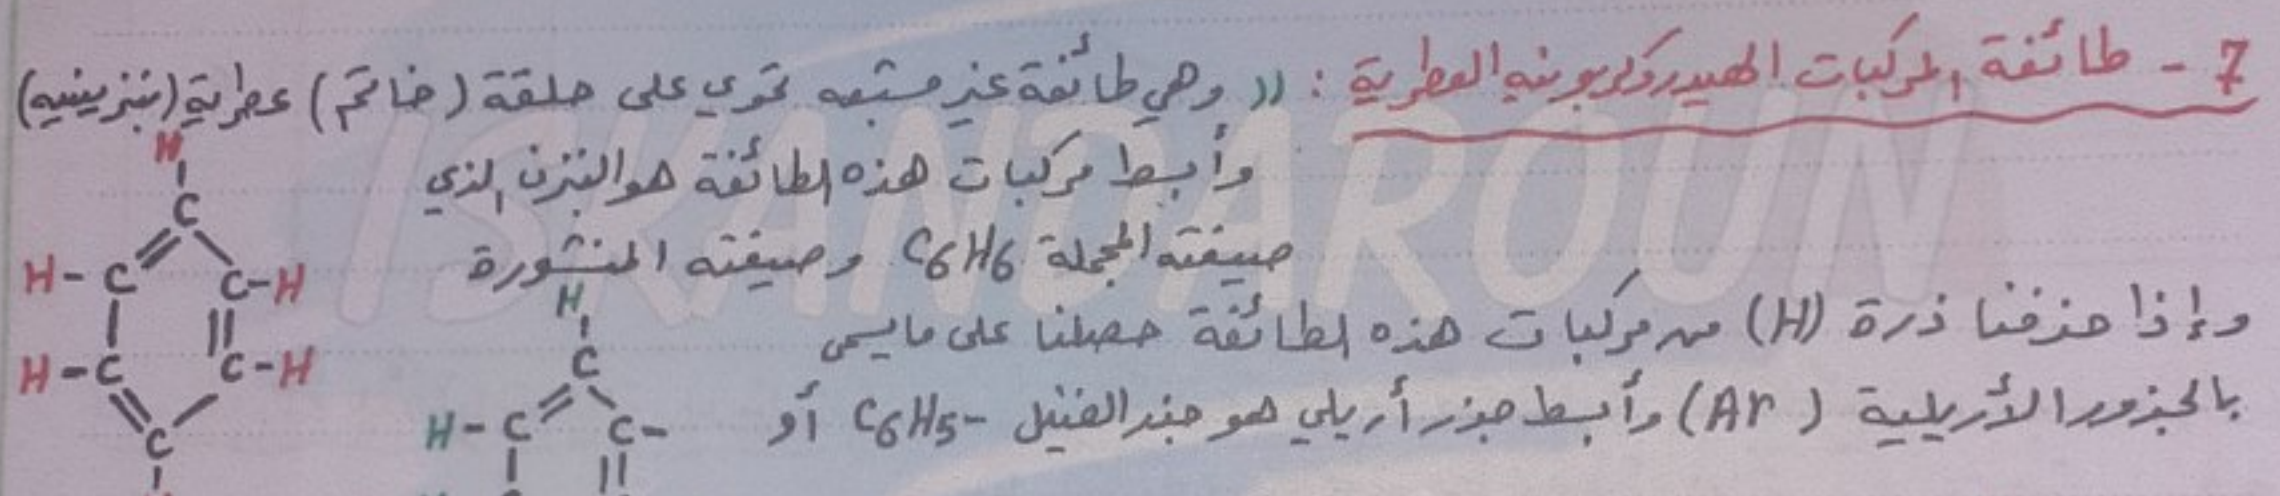 7 - طائفة المركبات الهيدروكربونية العطرية : (( وهي طائفة غير مشبعة تحوي على حلقة (خاتم) عطرية (بنزينية)
وأبسط مركبات هذه الطائفة هو البنزن الذي
صيغته المجملة C6H6 وصيغته المنشورة
وإذا حذفنا ذرة (H) من مركبات هذه الطائفة حصلنا على ما يسمى
بالجذور الأريلية (Ar) وأبسط جذر أريلي هو جذر الفنيل C6H5- أو
H
C
H-C C-H
H-C C-H
C
H
C
H-C C-
ISKANDAROUN